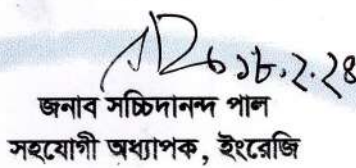 ১৮.২.২৪
জনাব সচ্চিদানন্দ পাল
সহযোগী অধ্যাপক, ইংরেজি